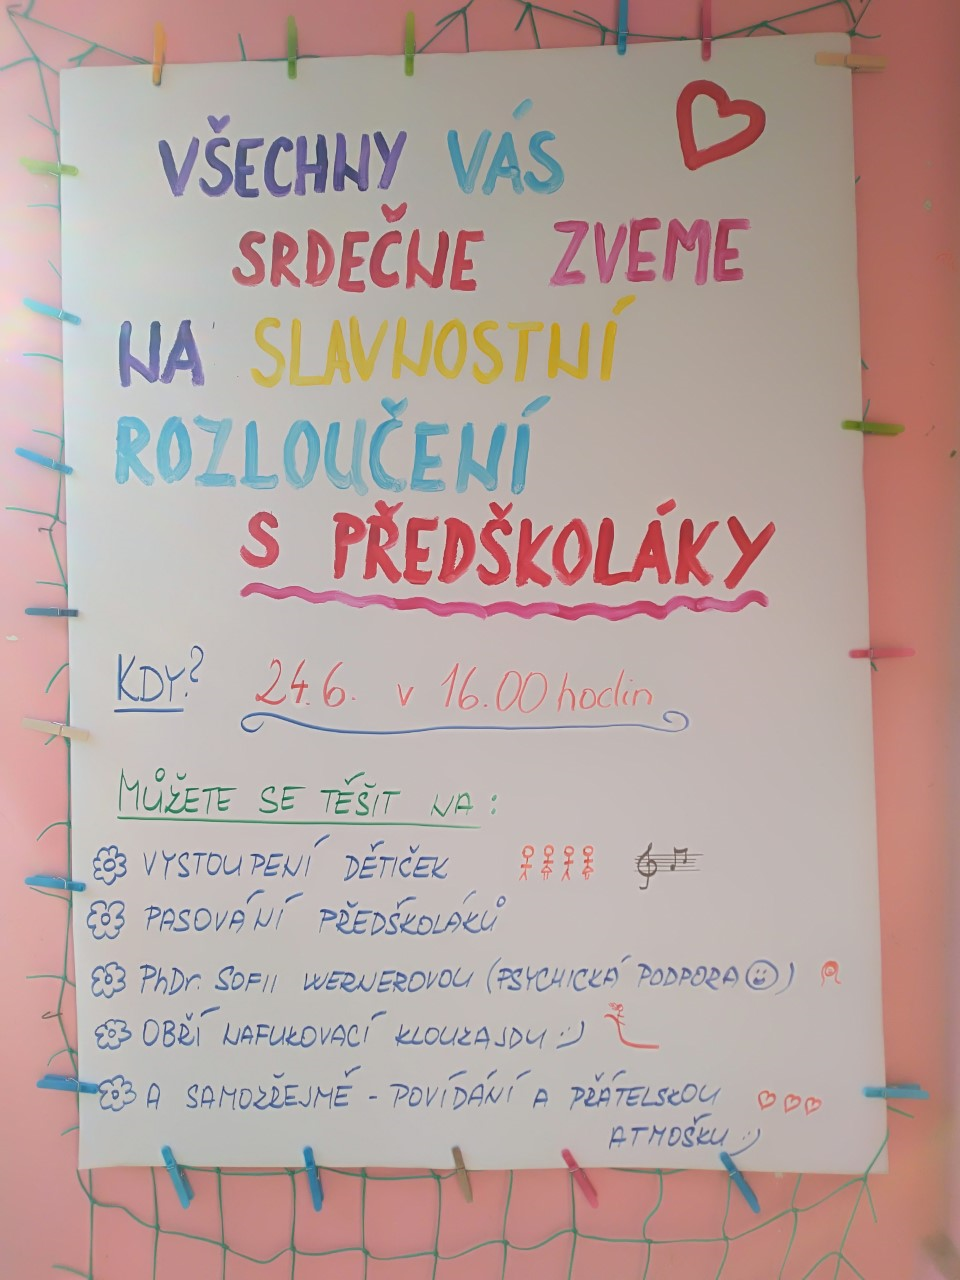 VŠECHNY VÁS
SRDEČNE ZVEME
NA SLAVNOSTNÍ
ROZLOUČENÍ
S PŘEDŠKOLÁKY
KDY? 24.6. v 16.00 hodin
MŮŽETE SE TĚŠIT NA:
VYSTOUPENÍ DĚTIČEK
PASOVÁNÍ PŘEDŠKOLÁKŮ
PhDr. SOFII WERNEROVOU (PSYCHICKÁ PODPORA☺)
OBŘÍ NAFUKOVACÍ KLOUZAJDU :)
A SAMOZŘEJMĚ - POVÍDÁNÍ A PŘÁTELSKOU
ATMOŠKU :)